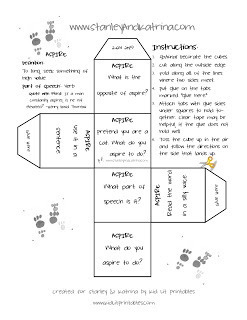 www.stanleyandkatrina.com
ASPIRE
Definition:
To long, seek something of
high value
part of speech: verb
aspiring, is he not
divinest? Henry David Thoreau
Instructions
cut along the outside edge.
Fold along all of the lines
where two sides meet.
Put glue on the tabs
marked "glue here."
Attach tabs with glue sides
under squares to hold to-
gether. Clear tape may be
helpful, if the glue does not
hold well.
Toss the cube up in the air
and follow the directions on
the side that lands up.
glue here
ASPIRE
What is the
opposite of aspire?
glue here
ASPIRE
use it in a
sentence
ASPIRE
pretend you are a
cat. What do you
aspire to do?
ASPIRE
Read the word
in a silly voice
glue here
ASPIRE
What part of
speech is it?
ASPIRE
What do you
aspire to do?
created for Stanley & Katrina by Kid Lit Printables
www.kidlitprintables.com